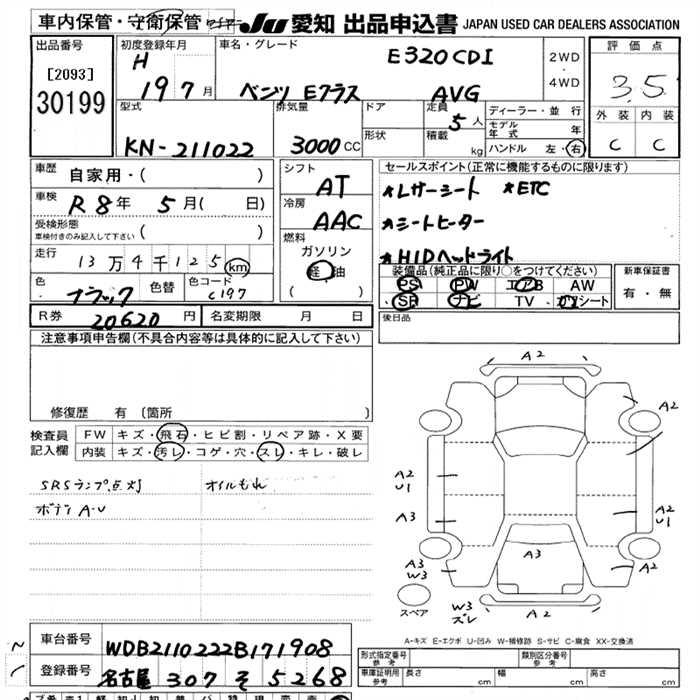 車内保管・守衛保管 JU 愛知 出品申込書 JAPAN USED CAR DEALERS ASSOCIATION
出品番号 [2093] 30199
初度登録年月 H 19 7月
車名・グレード E320CDI ベンツ Eクラス AVG
2WD・4WD
評価点 3.5
外装 C 内装 C
型式 KN-211022
排気量 3000CC
ドア 形状
定員 5人 積載 kg
ディーラー・並行
モデル年式 年
ハンドル 左・右
車歴 自家用・( )
車検 R8年 5月( 日)
受検形態 車検付きのみ記入して下さい ( )
走行 13万4千125km
色 ブラック 色替 色コード C197
R券 20620円 名変期限 月 日
シフト AT
冷房 AAC
燃料 ガソリン 軽油 ( )
セールスポイント(正常に機能するものに限ります)
*レザーシート *ETC
*シートヒーター
*HIDヘッドライト
装備品(純正品に限り○をつけてください)
PS PW エアB AW
SR ナビ TV カワシート
新車保証書 有・無
後日品
注意事項申告欄(不具合内容等は具体的に記入して下さい)
修復歴 有 〔箇所 〕
検査員記入欄
FW キズ・飛石・ヒビ割・リペア跡・X要
内装 キズ・汚レ・コゲ・穴・スレ・キレ・破レ
SRSランプ点灯 オイルもれ
ボデーA-U
A2
A2
A2 U1
A3
A2 U1
A3
A3 W3
W3 ズレ
A2
A2
スペア
A-キズ E-エクボ U-凹み W-補修跡 S-サビ C-腐食 XX-交換済
車台番号 WDB2110222B171908
登録番号 名古屋 307 そ 5268
形式指定番号 参考 類別区分番号 参考
車庫証明用 参考 長さ cm 幅 cm 高さ cm